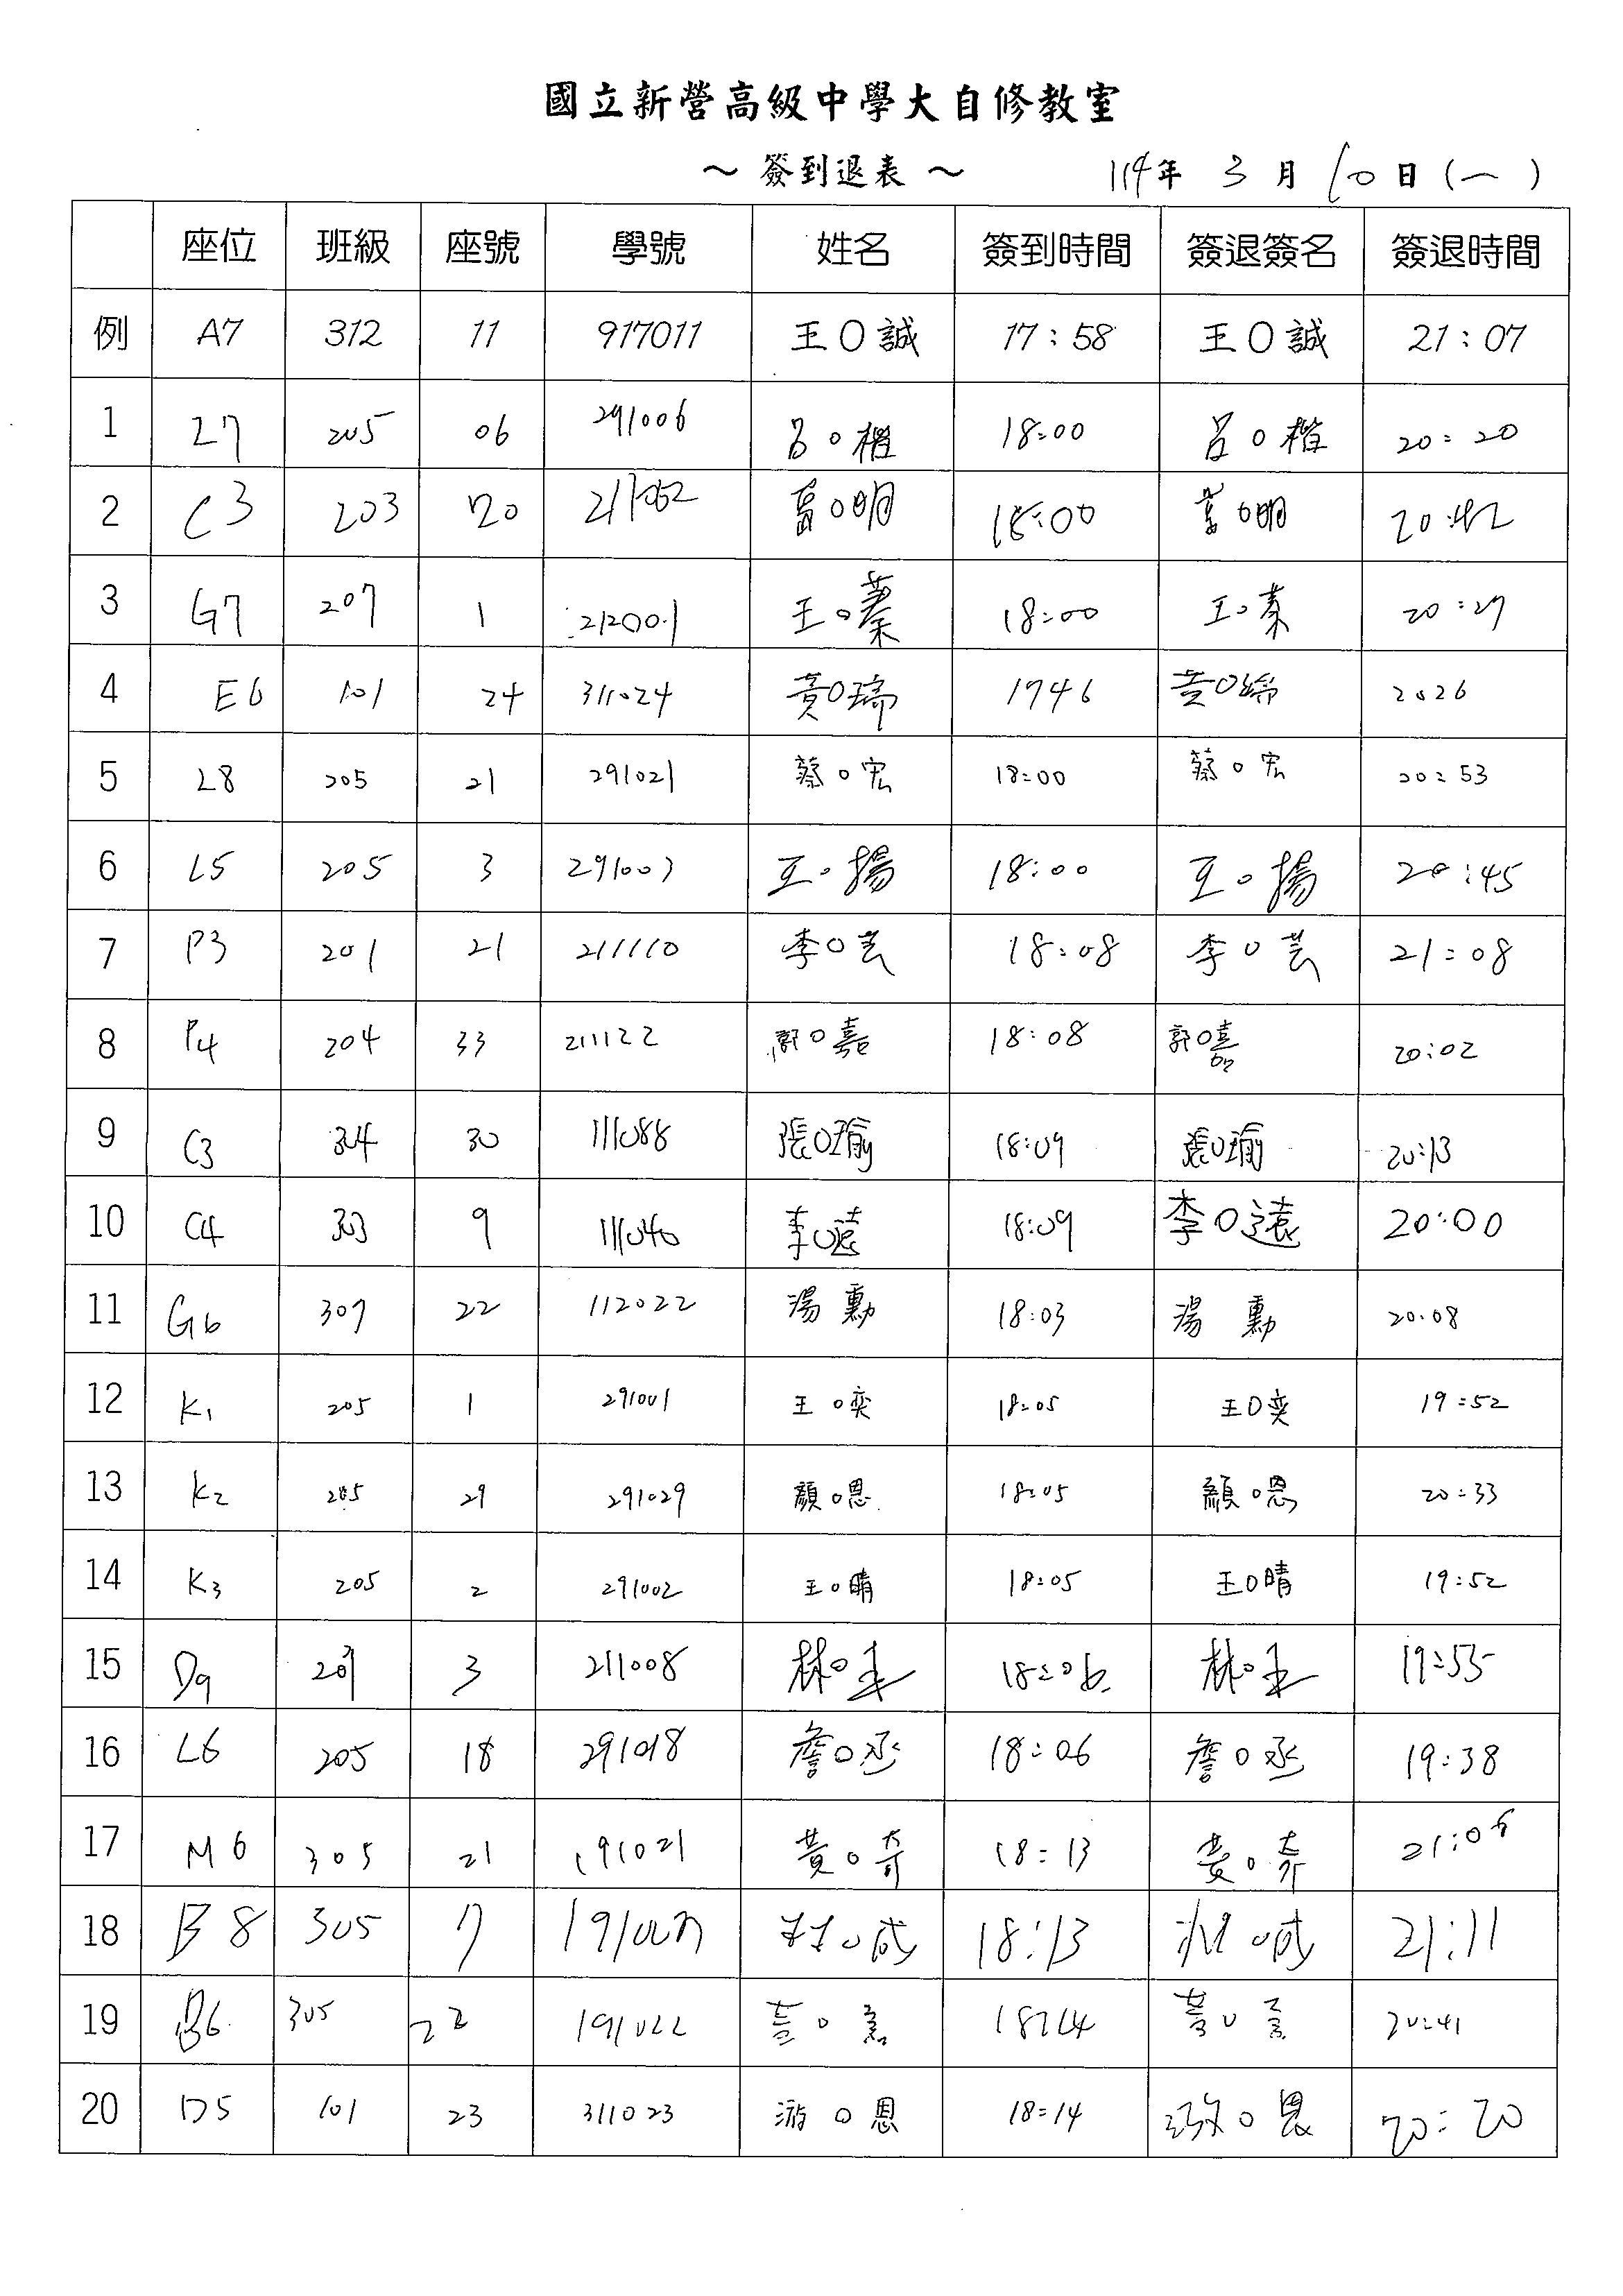 國立新營高級中學大自修教室
～ 簽到退表 ～ 114年 3月 10日(一)
座位 班級 座號 學號 姓名 簽到時間 簽退簽名 簽退時間
例 A7 312 11 917011 王O誠 17:58 王O誠 21:07
1 L7 205 06 291006 呂O楷 18:00 呂O楷 20:20
2 C3 203 20 O明 18:00 O明 20:42
3 G7 207 1 212001 王O蓁 18:00 王O蓁 20:27
4 E6 101 24 311024 黃O瑞 1746 黃O瑞 2026
5 L8 205 21 291021 蔡O宏 18:00 蔡O宏 20:53
6 L5 205 3 291003 王O揚 18:00 王O揚 20:45
7 P3 201 21 211110 李O芸 18:08 李O芸 21:08
8 P4 204 33 211122 郭O嘉 18:08 郭O嘉 20:02
9 C3 304 30 111088 張O瑜 18:09 張O瑜 20:13
10 C4 303 9 111040 李O遠 18:09 李O遠 20:00
11 G6 307 22 112022 湯 勳 18:03 湯 勳 20:08
12 K1 205 1 291001 王O奕 18:05 王O奕 19:52
13 K2 205 29 291029 顏O恩 18:05 顏O恩 20:33
14 K3 205 2 291002 王O晴 18:05 王O晴 19:52
15 D9 3 211008 林O 18:06 林O 19:55
16 L6 205 18 291018 詹O丞 18:06 詹O丞 19:38
17 M6 305 21 191021 黃O奇 18:13 黃O奇
18 B8 305 7 191007 O成 18:13 O成 21:11
19 B6 305 22 191022 18:14 20:41
20 D5 101 23 311023 游O恩 18:14 游O恩 20:20